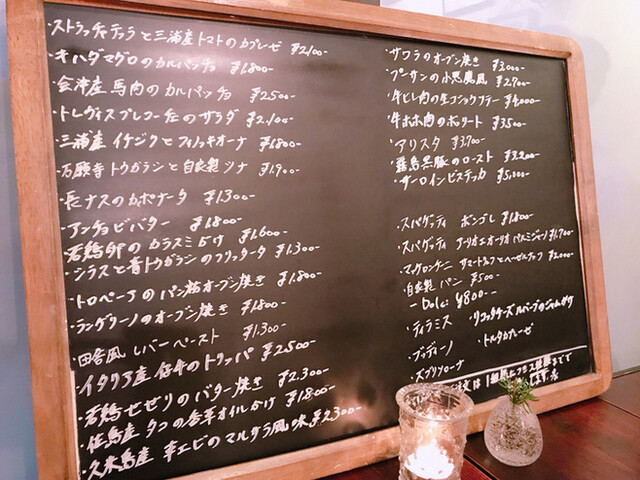 ・ストラッチャテッラと三浦産トマトのカプレーゼ ¥2,100-
・キハダマグロのカルパッチョ ¥1,800-
・会津産 馬肉のカルパッチョ ¥2500-
・トレヴィスプレコーチェのサラダ ¥2,100-
・三浦産 イチジクとフィノッキオーナ ¥1,800-
・万願寺トウガラシと自家製ツナ ¥1,900-
・長ナスのカポナータ ¥1,300-
・アンチョビバター ¥1,800-
・若鶏卵のカラスミがけ ¥1,600-
・シラスと青トウガラシのフリッタータ ¥1,300-
・トロペーアのパン粉オーブン焼き ¥1,800-
・ラングリーノのオーブン焼き ¥1,800-
・田舎風 レバーペースト ¥1,300-
・イタリア産 仔牛のトリッパ ¥2500-
・若鶏せせりのバター焼き ¥2,300-
・佐島産 タコの香草オイルがけ ¥1,800-
・久米島産 車エビのマルサラ風味 ¥2,300-
・サワラのオーブン焼き ¥3,000-
・プーサンの小悪魔風 ¥2,900-
・牛ヒレ肉の ¥4,000-
・牛ホホ肉のボリート ¥3,500-
・アリスタ ¥3,700-
・霧島黒豚のロースト ¥3,200-
・サーロインビステッカ ¥5,000-
・スパゲッティ ボンゴレ ¥1,800-
・スパゲッティ アーリオエオーリオ パルミジャーノ ¥1,700-
・マッケロンチーニ ¥2,000-
・自家製 パン ¥500-
- Dolci ¥800-
・ティラミス ・リコッタチーズ
・ブディーノ ・トルタカプレーゼ
・ズブリゾローナ